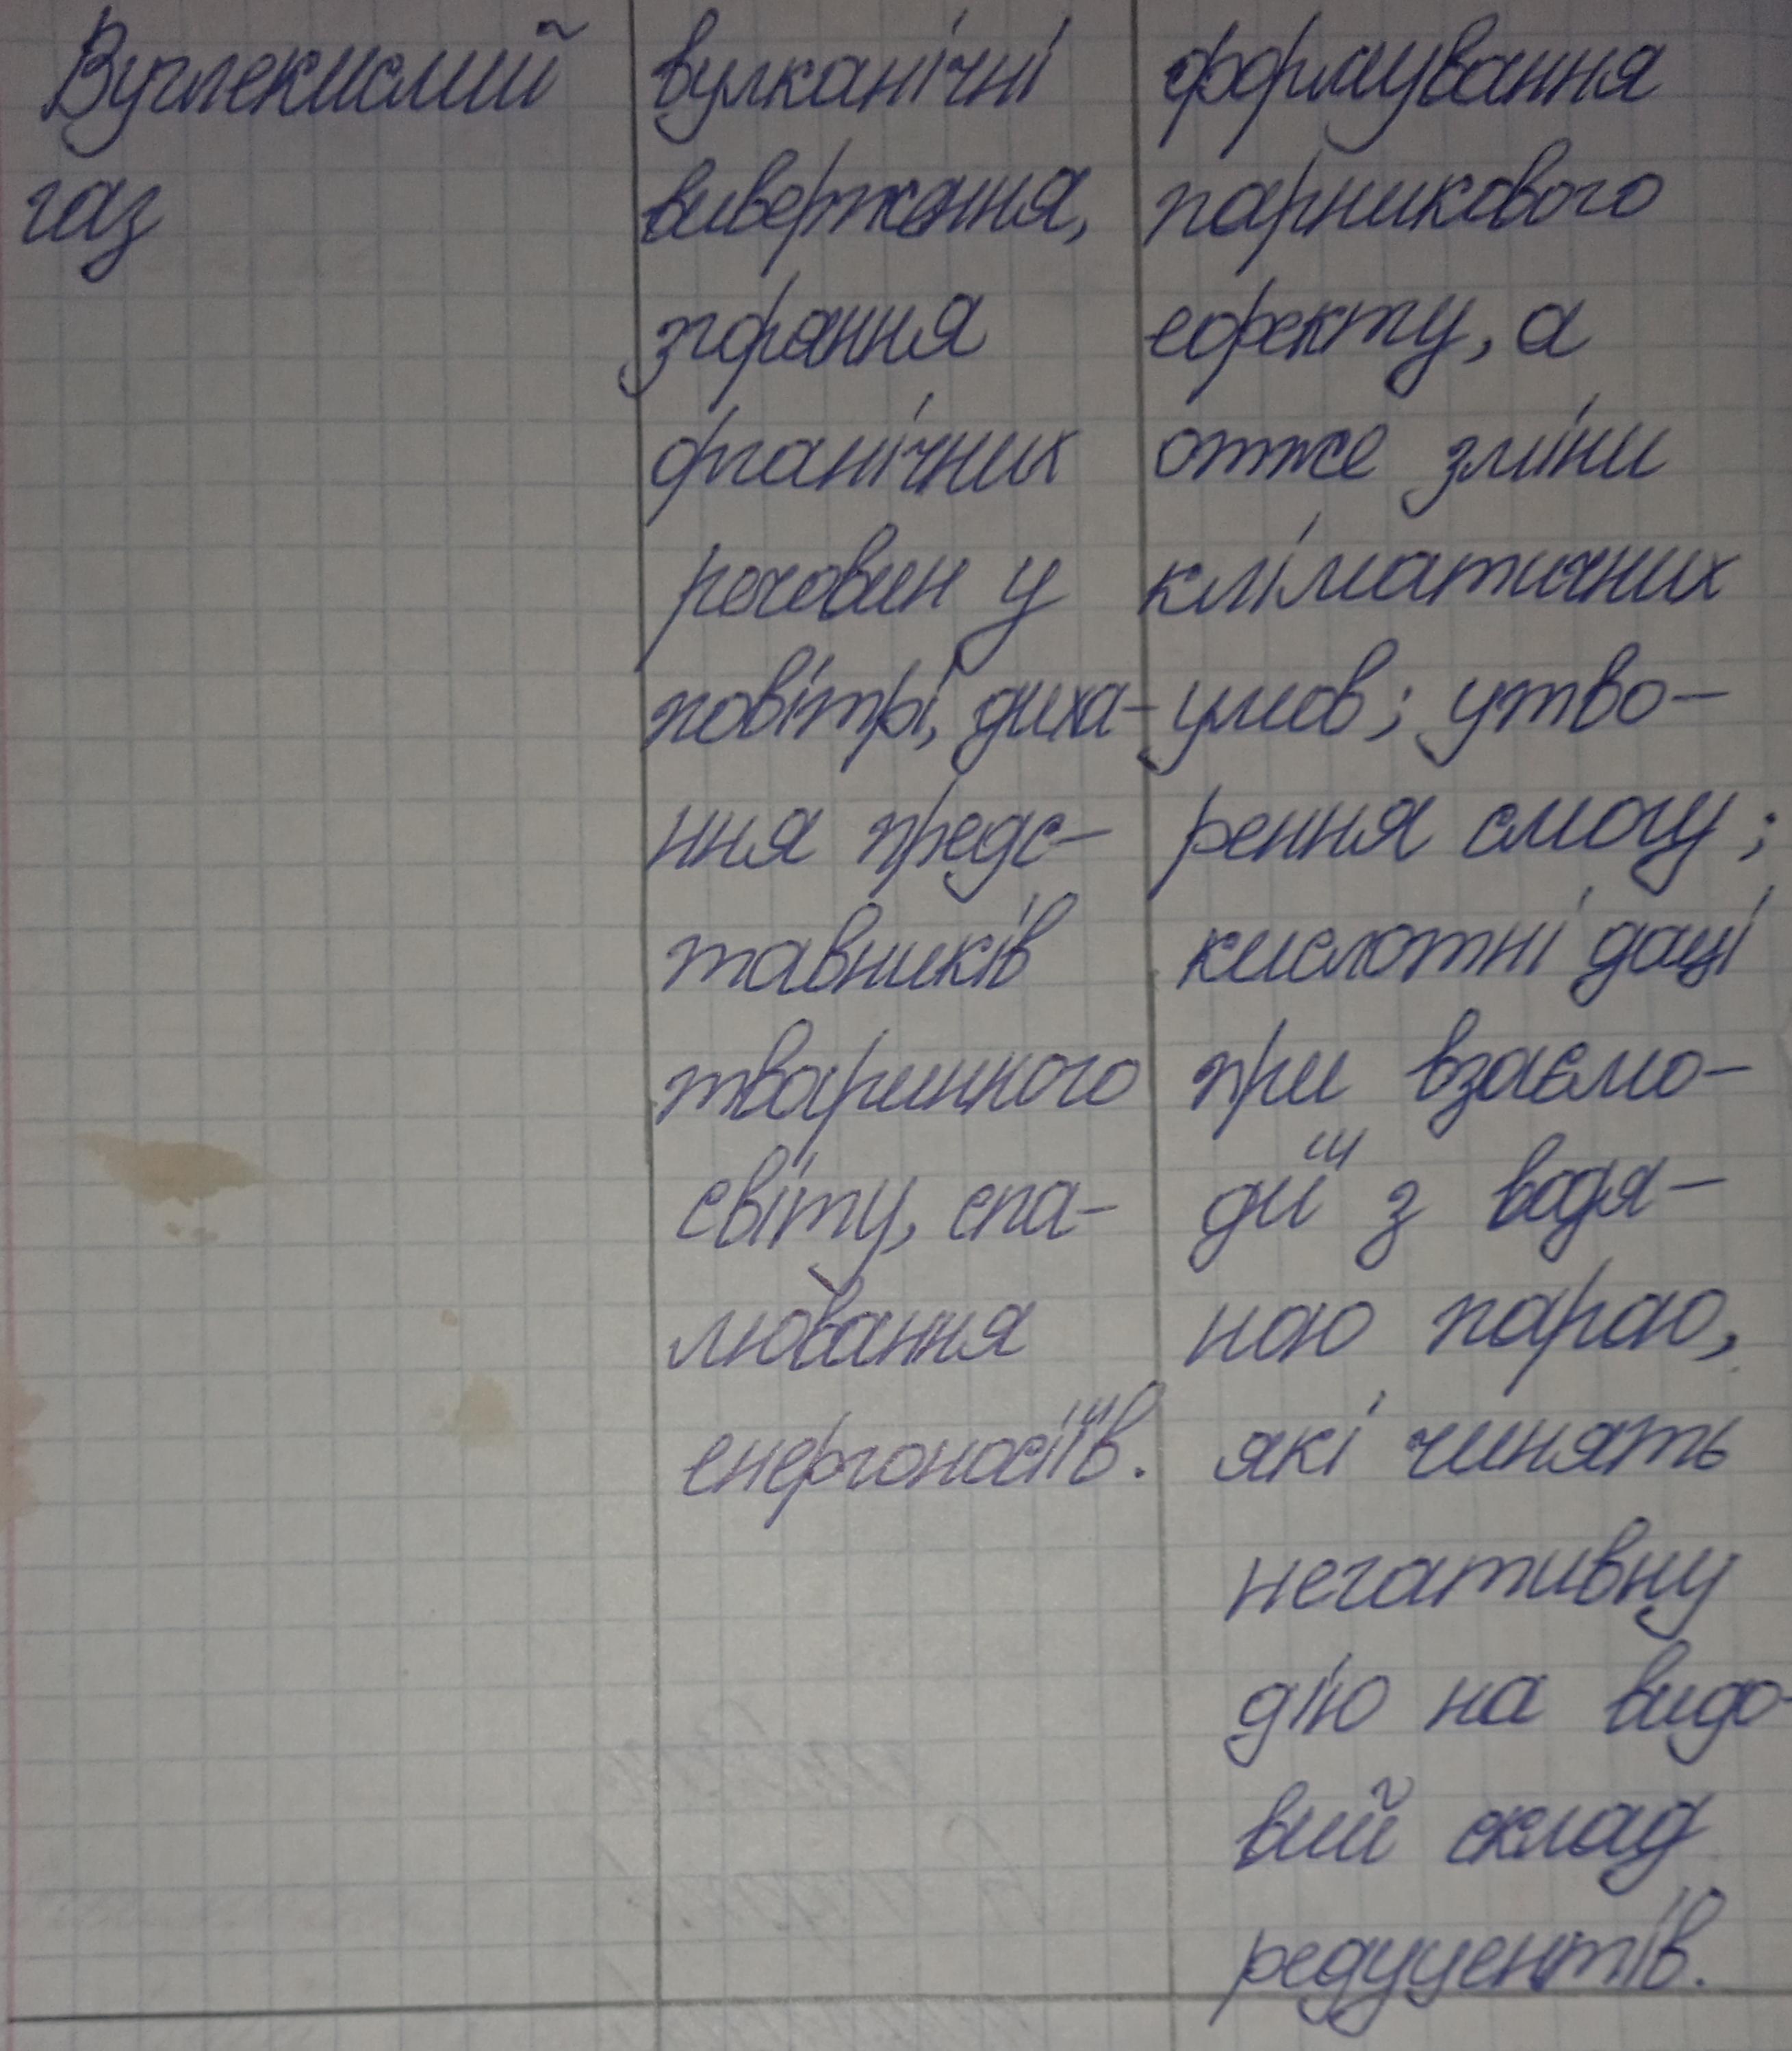 Вуглекислий
газ
вулканічні
виверження,
згоряння
органічних
речовин у
повітрі, диха-
ння предс-
тавників
тваринного
світу, спа-
лювання
енергоносіїв.
формування
парникового
ефекту, а
отже зміни
кліматичних
умов; утво-
рення смогу;
кислотні дощі
при взаємо-
дії з водя-
ною парою,
які чинять
негативну
дію на видо-
вий склад
редуцентів.